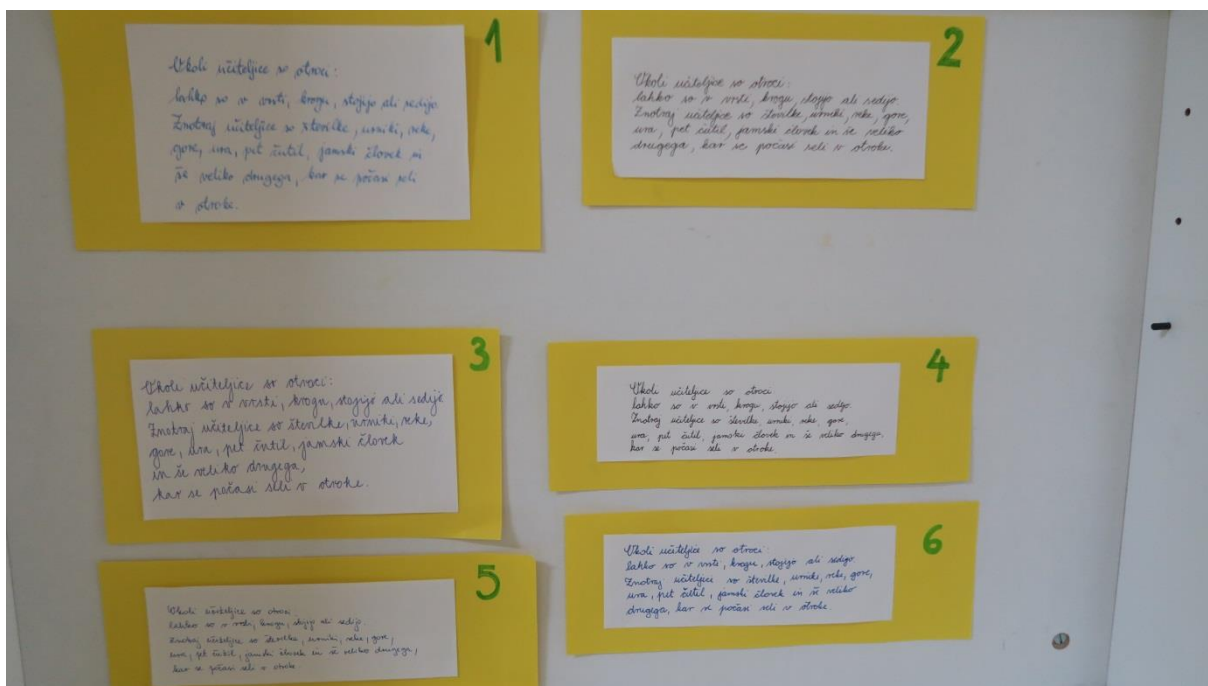 1
Okoli učiteljice so otroci:
lahko so v vrsti, krogu, stojijo ali sedijo.
Znotraj učiteljice so številke, urniki, reke,
gore, ura, pet čutil, jamski človek in
še veliko drugega, kar se počasi seli
v otroke.
2
Okoli učiteljice so otroci:
lahko so v vrsti, krogu, stojijo ali sedijo.
Znotraj učiteljice so številke, urniki, reke, gore,
ura, pet čutil, jamski človek in še veliko
drugega, kar se počasi seli v otroke.
3
Okoli učiteljice so otroci:
lahko so v vrsti, krogu, stojijo ali sedijo
Znotraj učiteljice so številke, urniki, reke,
gore, ura, pet čutil, jamski človek
in še veliko drugega,
kar se počasi seli v otroke.
4
Okoli učiteljice so otroci
lahko so v vrsti, krogu, stojijo ali sedijo.
Znotraj učiteljice so številke, urniki, reke, gore,
ura, pet čutil, jamski človek in še veliko drugega,
kar se počasi seli v otroke.
5
Okoli učiteljice so otroci
lahko so v vrsti, krogu, stojijo ali sedijo.
Znotraj učiteljice so številke, urniki, reke, gore,
ura, pet čutil, jamski človek in še veliko drugega,
kar se počasi seli v otroke.
6
Okoli učiteljice so otroci:
lahko so v vrsti, krogu, stojijo ali sedijo.
Znotraj učiteljice so številke, urniki, reke, gore,
ura, pet čutil, jamski človek in še veliko
drugega, kar se počasi seli v otroke.